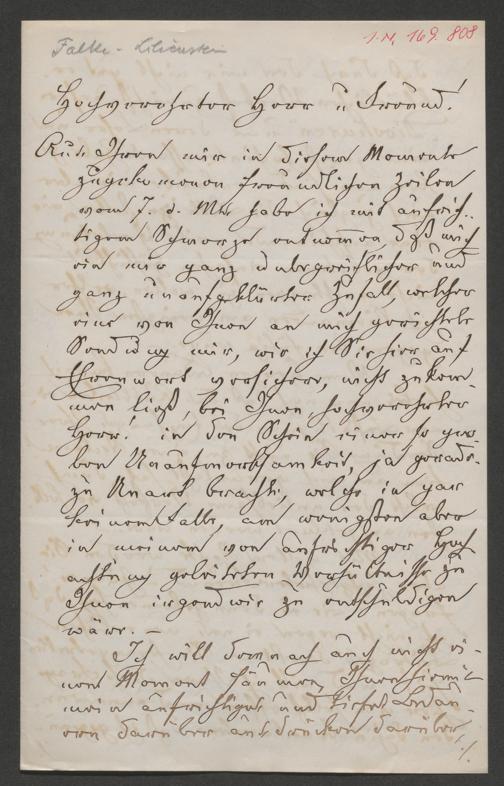 Falke - Lilienstein
I.N. 169.808
Hochverehrter Herr u Freund!
Aus Ihren mir in diesem Momente
zugekommenen freundlichen Zeilen
vom 7. d. Mts habe ich mit aufrich-
tigem Schmerze entnommen, daß mich
ein mir ganz unbegreiflicher und
ganz unaufgeklärter Zufall, welcher
eine von Ihnen an mich gerichtete
Sendung mir, wie ich Sie hier auf
Ehrenwort versichere, nicht zukom-
men ließ, bei Ihnen hochverehrter
Herr! in den Schein einer so gro-
ben Unaufmerksamkeit, ja gerade-
zu Unart brachte, welche in gar
keinem Falle, am wenigsten aber
in meinem von aufrichtiger Hoch
achtung geleiteten Verhältnisse zu
Ihnen irgendwie zu entschuldigen
wäre. –
Ich will demnach auch nicht ei-
nen Moment säumen Ihnen hiemit
mein aufrichtiges und tiefes Bedau-
ern darüber auszudrücken darüber
./.